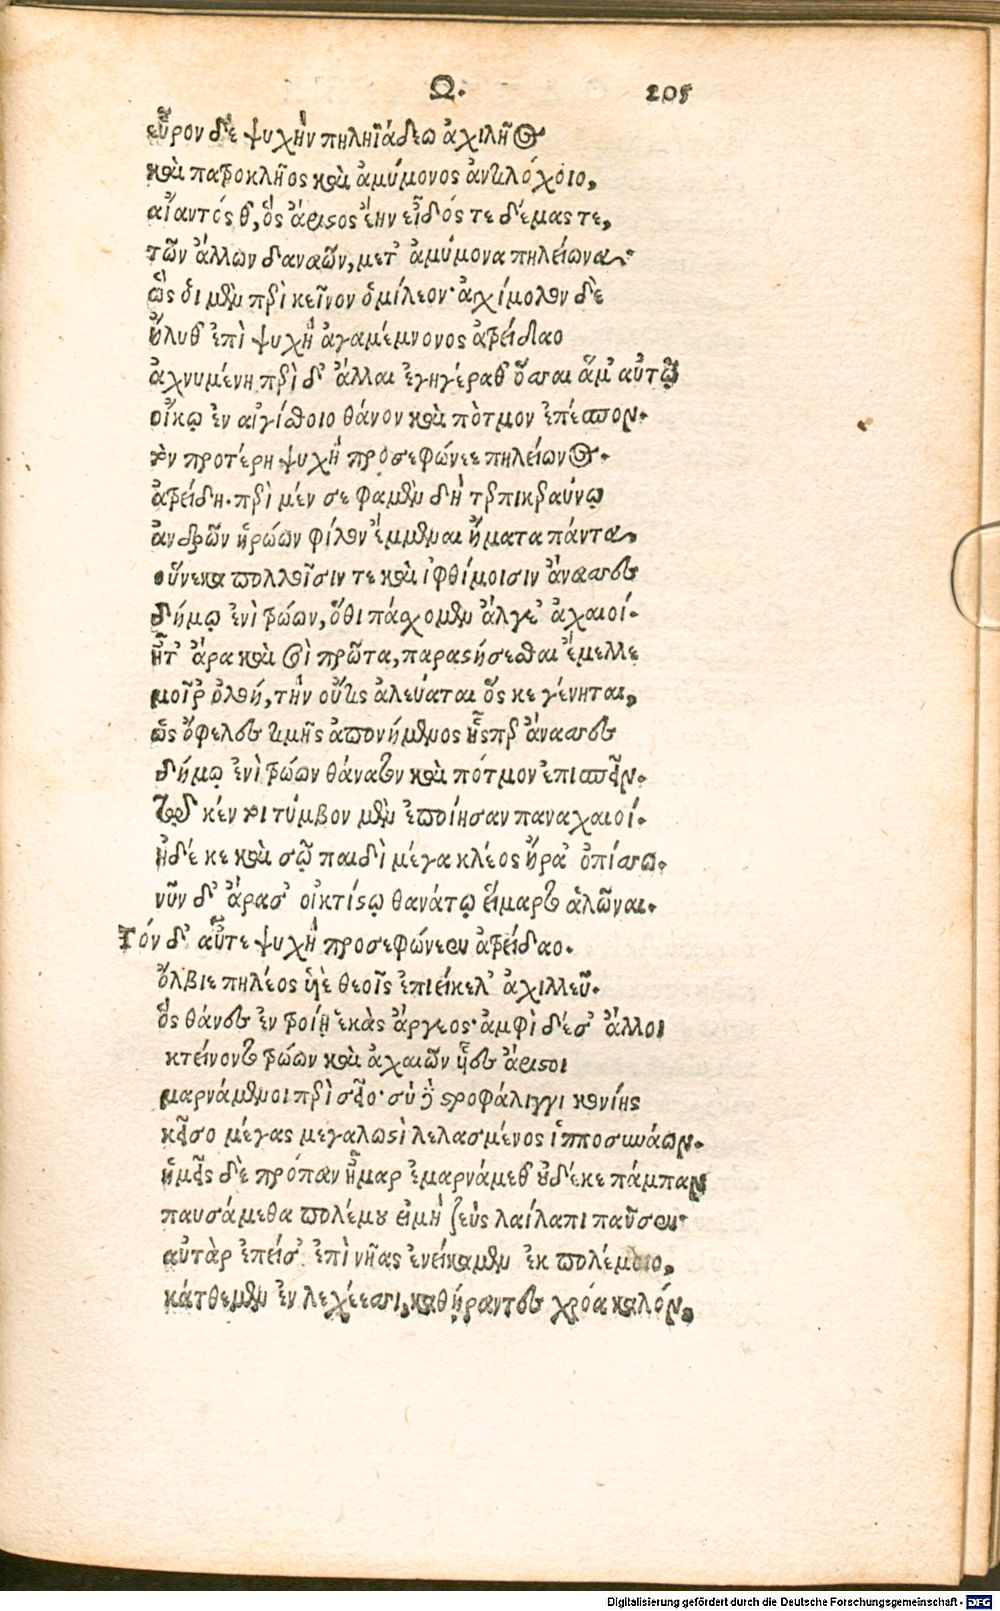 Ω. 205
εὗρον δὲ ψυχὴν πηληϊάδεω ἀχιλῆος
καὶ πατροκλῆος καὶ ἀμύμονος ἀντιλόχοιο,
αἴαντός θ', ὃς ἄριστος ἔην εἶδός τε δέμας τε,
τῶν ἄλλων δαναῶν, μετ' ἀμύμονα πηλείωνα·
ὣς ὁι μὲν περὶ κεῖνον ὁμίλεον· ἀγχίμολον δὲ
ἤλυθ' ἐπὶ ψυχὴ ἀγαμέμνονος ἀτρείδαο
ἀχνυμένη περὶ δ' ἄλλαι ἐγηγέραθ' ὅσσαι ἅμ' αὐτῷ
οἴκῳ ἐν αἰγίσθοιο θάνον καὶ πότμον ἐπέσπον.
τὸν προτέρη ψυχὴ προσεφώνεε πηλείωνος.
ἀτρείδη. περὶ μέν σε φαμὲν διῒ τερπικεραύνῳ
ἀνδρῶν ἡρώων φίλον ἔμμεναι ἤματα πάντα,
οὕνεκα πολλοῖσιν τε καὶ ἰφθίμοισιν ἄνασσες
δήμῳ ἐνὶ τρώων, ὅθι πάσχομεν ἄλγε' ἀχαιοί.
ἦτ' ἄρα καὶ σοὶ πρῶτα, παραστήσεσθαι ἔμελλε
μοῖρ' ὀλοή, τὴν οὔτις ἀλεύαται ὅς κε γένηται,
ὡς ὄφελες τιμῆς ἀπονήμενος ἧςπερ ἄνασσες
δήμῳ ἐνὶ τρώων θάνατον καὶ πότμον ἐπισπεῖν.
τῷ κέν τοι τύμβον μὲν ἐποίησαν παναχαιοί.
ἠδέ κε καὶ σῷ παιδὶ μέγα κλέος ἤρα' ὀπίσσω.
νῦν δ' ἄρα σ' οἰκτίστῳ θανάτῳ εἵμαρτο ἁλῶναι.
Τόν δ' αὖτε ψυχὴ προσεφώνεεν ἀτρείδαο.
ὄλβιε πηλέος υἱὲ θεοῖς ἐπιείκελ' ἀχιλλεῦ.
ὃς θάνες ἐν τροίῃ ἑκὰς ἄργεος· ἀμφὶ δέ σ' ἄλλοι
κτείνοντο τρώων καὶ ἀχαιῶν υἷες ἄριστοι
μαρνάμενοι περὶ σεῖο· σὺ δ' ἐν στροφάλιγγι κονίης
κεῖσο μέγας μεγαλωστὶ λελασμένος ἱπποσυνάων.
ἡμεῖς δὲ πρόπαν ἦμαρ ἐμαρνάμεθ' οὐδέ κε πάμπαν
παυσάμεθα πολέμου εἰμὴ ζεὺς λαίλαπι παῦσεν·
αὐτὰρ ἐπεί σ' ἐπὶ νῆας ἐνείκαμεν ἐκ πολέμοιο,
κάτθεμεν ἐν λεχέεσσι, καθήραντες χρόα καλόν,
Digitalisierung gefördert durch die Deutsche Forschungsgemeinschaft - DFG